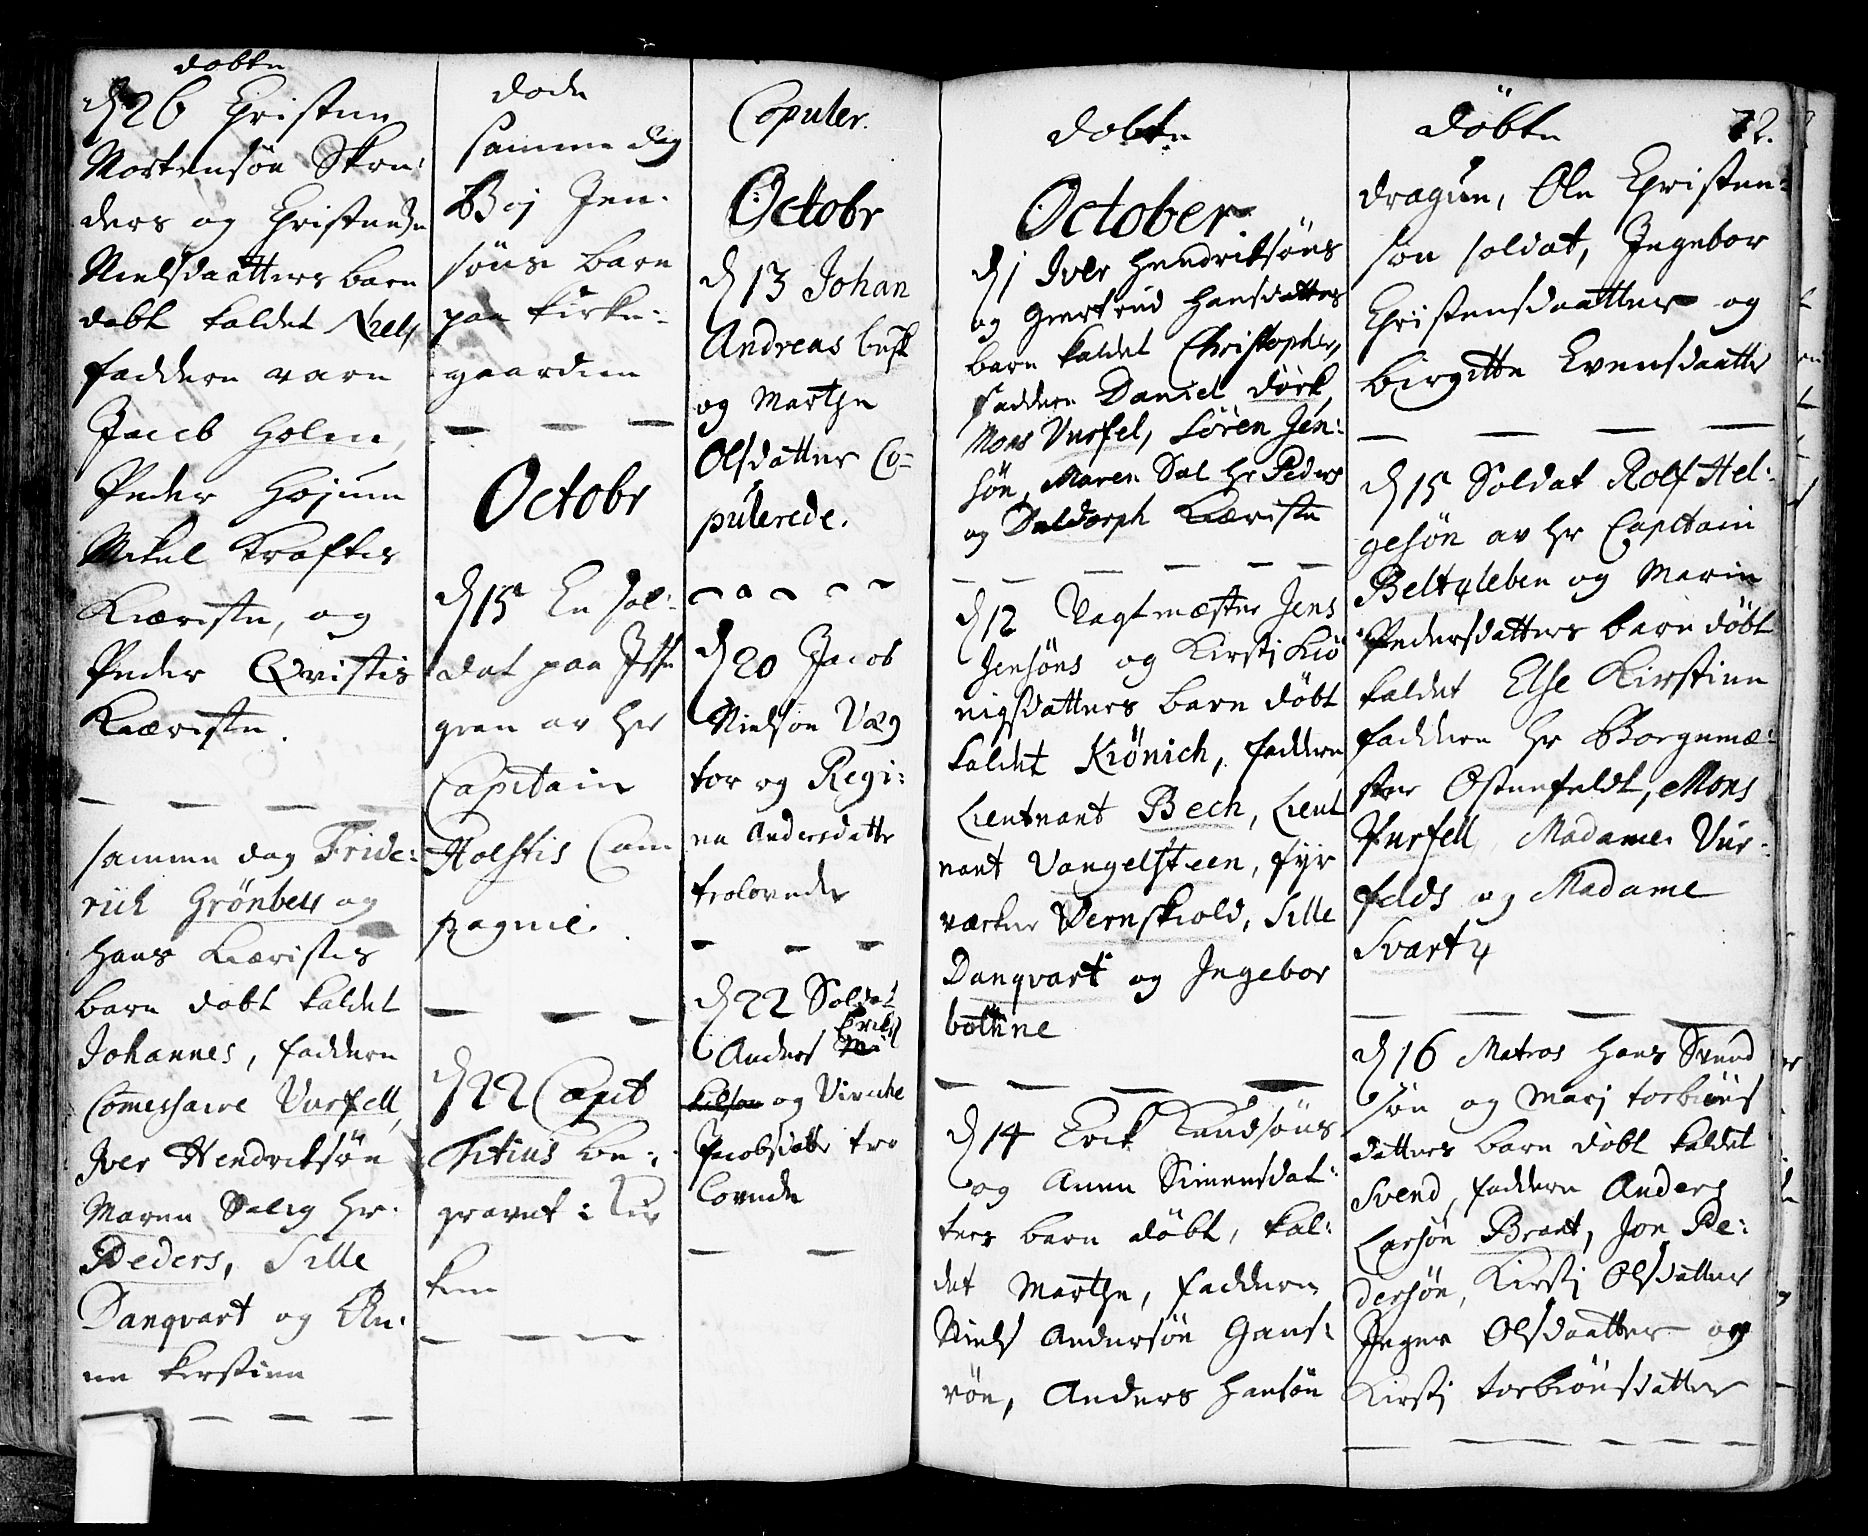 døbte
d 26 Christen
Mortensøn Skre-
ders og Christendze
Nielsdaatters barn
døbt kaldet Niels
faddere vare
Jacob Holm,
Peder Hojum
Mikel Kraftes
Kæriste, og
Peder Qvistis
Kæriste.
samme dag Fride-
rich Grønbek og
hans Kæristes
barn døbt kaldet
Johannes, faddere
Commessaire Vurfell,
Iver Hendriksøn
Maren Salig Hr.
Peders, Sille
Danqvart og An-
ne Kirstine
døde
samme dag
Boj Jen-
søns barn
paa Kirke-
gaarden
Octobr
d 15 En sol-
dat paa
av Her
Capitain
Holstis Com
pagnie.
d 22 Capit
Titius be-
gravet i Kir
ken
Copuler.
Octobr
d 13 Johan
Andreas busk
og Marthe
Olsdatter Co-
pulerede.
d 20 Jacob
Nielsøn Væg
tor og Regi-
ne Andersdatter
trolovede
d 22 Soldat
Anders
og Viviche
Jacobsdatter tro
lovede
døbte
October
d 1 Iver Hendriksøns
og Giertrud Hansdatters
barn kaldet Christopher,
faddere Daniel Dørk,
Mons Vurfel, Søren Jen-
søn, Maren Sal Hr Peders
og Daldorph Kæriste
d 12 Vagtmæster Jens
Jensøns og Kirsti Kiø
nigsdatters barn døbt
kaldet Kiønich, faddere
Lieutnant Bech, Lieut
nant Vangelsteen, fyr
værker Vernskiold, Sille
Danqvart og Ingebor
bothne
d 14 Erik Knudsøns
og Anne Simensdat-
ters barn døbt, kal-
det Marthe, faddere
Niels Andersøn Gans-
røn, Anders Hansøn
døbte
72.
dragun, Ole Christen-
søn soldat, Ingebor
Christensdaatter og
birgitte Evensdaatter
d 15 Soldat Rolf Hel-
gesøn av Hr Capitain
Beltzleben og Marin
Pedersdatters barn døbt
kaldet Else Kirstine
faddere Hr Borgemæ-
ster Ostenfeldt, Mons
Vurfell, Madame Vur-
felds og Madame
Svartz
d 16 Matros Hans Svend
søn og Marj torbiøns
datters barn døbt kaldet
Svend, faddere Anders
Larsøn Brant, Jon Pe-
dersøn, Kirstj Olsdatter
Inger Olsdaatter og
Kirstj torbiønsdatter